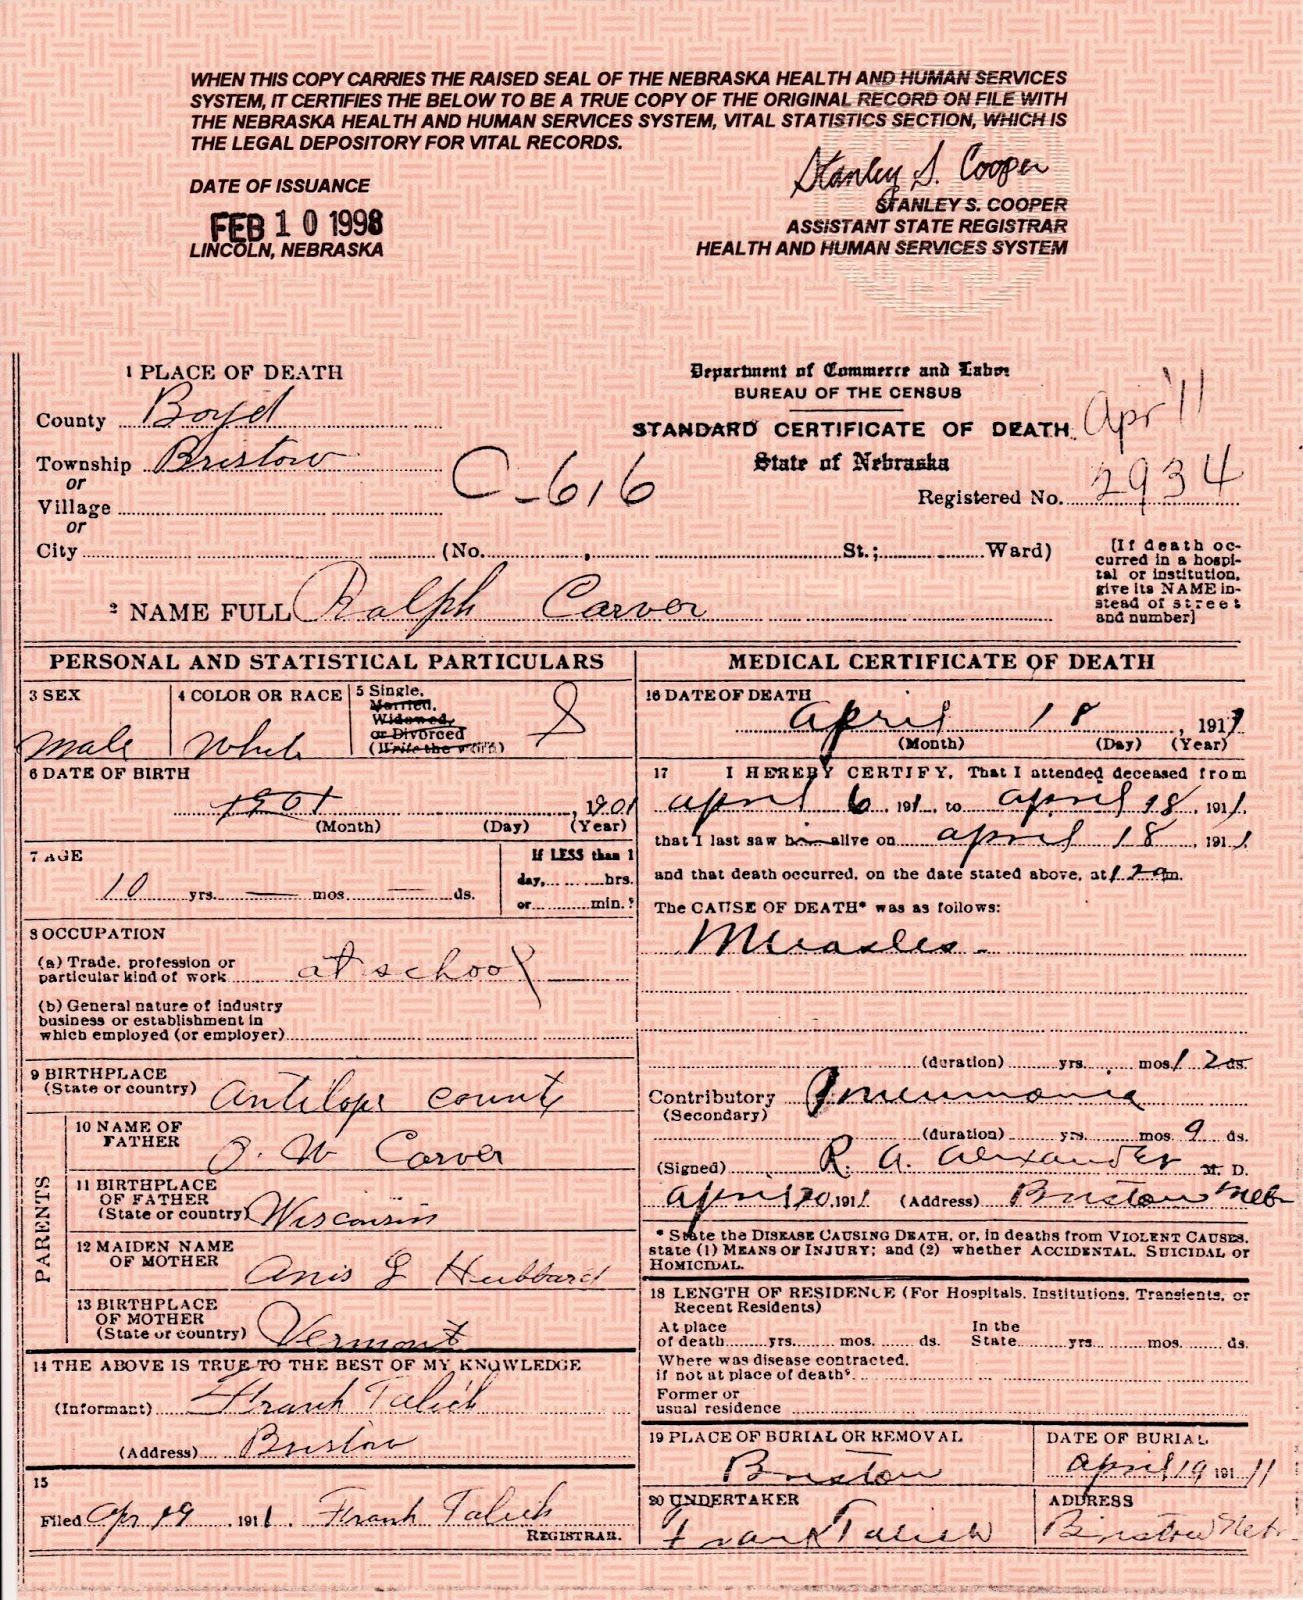 WHEN THIS COPY CARRIES THE RAISED SEAL OF THE NEBRASKA HEALTH AND HUMAN SERVICES
SYSTEM, IT CERTIFIES THE BELOW TO BE A TRUE COPY OF THE ORIGINAL RECORD ON FILE WITH
THE NEBRASKA HEALTH AND HUMAN SERVICES SYSTEM, VITAL STATISTICS SECTION, WHICH IS
THE LEGAL DEPOSITORY FOR VITAL RECORDS.
DATE OF ISSUANCE
FEB 10 1998
LINCOLN, NEBRASKA
Stanley S. Cooper
STANLEY S. COOPER
ASSISTANT STATE REGISTRAR
HEALTH AND HUMAN SERVICES SYSTEM
1 PLACE OF DEATH
County Boyd
Township Bristow
or
Village
or
City (No. , St.; Ward)
C-616
Department of Commerce and Labor
BUREAU OF THE CENSUS
STANDARD CERTIFICATE OF DEATH
State of Nebraska
Apr '11
Registered No. 2934
[If death oc-
curred in a hospi-
tal or institution,
give its NAME in-
stead of street
and number]
2 NAME FULL Ralph Carver
PERSONAL AND STATISTICAL PARTICULARS
3 SEX
Male
4 COLOR OR RACE
White
5 Single,
Married,
Widowed,
or Divorced
(Write the word)
S
6 DATE OF BIRTH
1901 , 1901
(Month) (Day) (Year)
7 AGE
10 yrs. — mos. — ds.
If LESS than 1
day, hrs.
or min.?
8 OCCUPATION
(a) Trade, profession or
particular kind of work at school
(b) General nature of industry
business or establishment in
which employed (or employer)
9 BIRTHPLACE
(State or country) Antilope County
PARENTS
10 NAME OF
FATHER
O. W Carver
11 BIRTHPLACE
OF FATHER
(State or country) Wisconsin
12 MAIDEN NAME
OF MOTHER
Anis J Hubbard
13 BIRTHPLACE
OF MOTHER
(State or country) Vermont
14 THE ABOVE IS TRUE TO THE BEST OF MY KNOWLEDGE
(Informant) Frank Talich
(Address) Bristow
15
Filed Apr 19 , 1911. Frank Talich
REGISTRAR.
MEDICAL CERTIFICATE OF DEATH
16 DATE OF DEATH
April 18 , 1911
(Month) (Day) (Year)
17 I HEREBY CERTIFY, That I attended deceased from
April 6 191 , to April 18 , 1911,
that I last saw him alive on April 18 , 1911,
and that death occurred, on the date stated above, at m.
The CAUSE OF DEATH* was as follows:
Measles
(duration) yrs. mos. 12 ds.
Contributory Pneumonia
(Secondary)
(duration) yrs. mos. 9 ds.
(Signed) R. A. Alexander M. D.
April 20, 1911 (Address) Bristow Nebr
* State the DISEASE CAUSING DEATH, or, in deaths from VIOLENT CAUSES,
state (1) MEANS OF INJURY; and (2) whether ACCIDENTAL, SUICIDAL or
HOMICIDAL.
18 LENGTH OF RESIDENCE (For Hospitals, Institutions, Transients, or
Recent Residents)
At place In the
of death yrs. mos. ds. State yrs. mos. ds.
Where was disease contracted,
if not at place of death?
Former or
usual residence
19 PLACE OF BURIAL OR REMOVAL
Bristow
DATE OF BURIAL
April 19 191 11
20 UNDERTAKER
Frank Talich
ADDRESS
Bristow Nebr